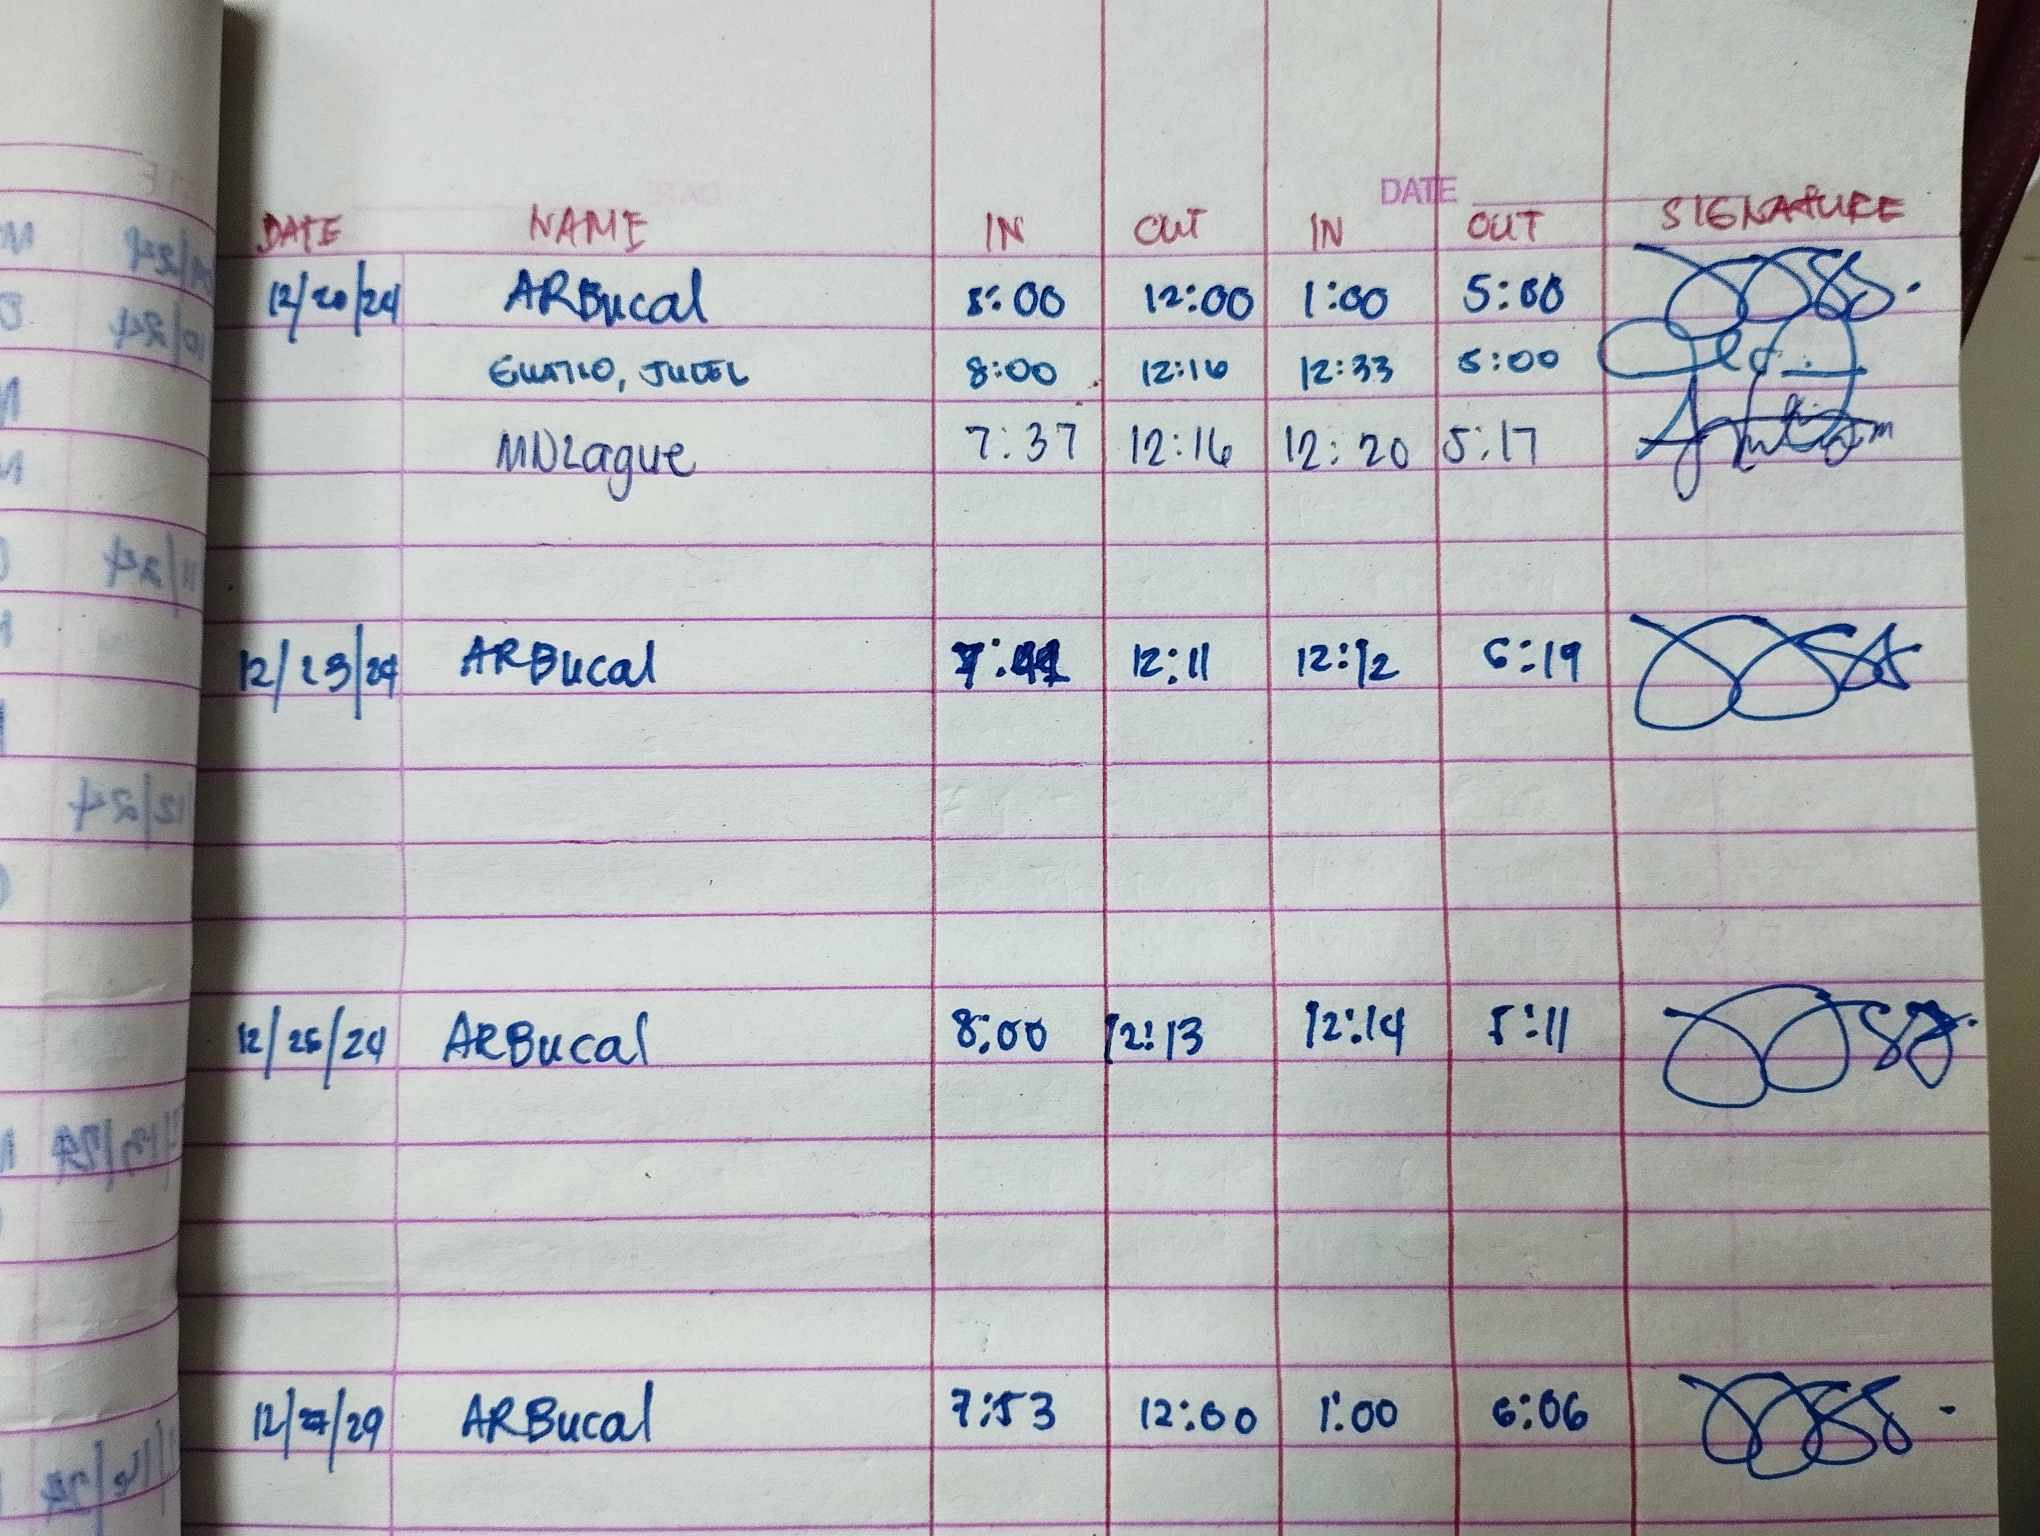 DATE
DATE NAME IN OUT IN OUT SIGNATURE
12/20/24 ARBucal 8:00 12:00 1:00 5:00
JUDEL 8:00 12:16 12:33 5:00
MNLague 7:37 12:16 12:20 5:17
12/23/24 ARBucal 12:11 12:12 6:19
12/26/24 ARBucal 8:00 12:13 12:14 5:11
12/27/29 ARBucal 7:53 12:00 1:00 6:06